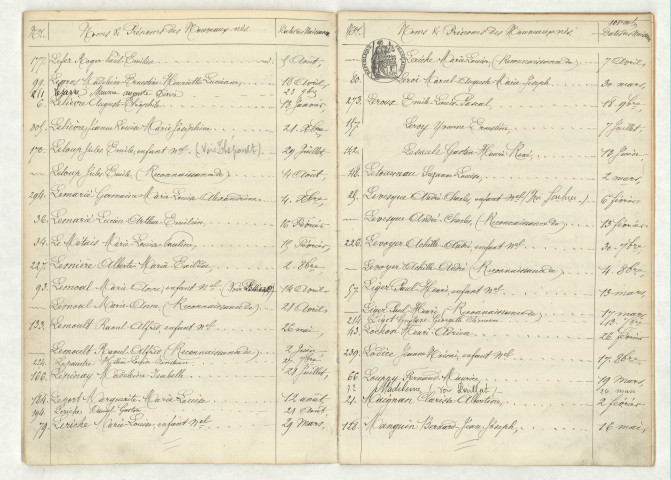 Nos. Noms & Prénoms des Nouveaux-nés Dates des Naissances
177 Lefer Roger Paul Emilien 1 Août,
99 Legros Madeleine Ernestine Henriette Lucienne 13 Avril,
211 Maurice Auguste 23 9bre
6 Lelièvre Auguste Théophile 13 Janvier
205 Lelièvre Jeanne Louise Marie Joséphine 21 8bre
170 Leloup Jules Emile, enfant nel (Voir Lépouet) 29 Juillet
— Leloup Jules Emile (Reconnaissance de) 4 Août,
294 Lemarié Germaine Marie Louise Alexandrine 4 8bre
36 Lemarié Lucien Arthur Emilien 16 Février
34 Le Métais Marie Louise 15 Février,
227 Lemière Albert Marie 2 8bre
93 Lemoul Marie Anne, enfant nel (Voir) 14 Avril
— Lemoul Marie Anne (Reconnaissance de) 21 Avril
133 Lemoult Raoul Alfred enfant nel 26 mai
Lemoult Raoul Alfred (Reconnaissance de) 2 Juin
166 Lépinay Madeleine Isabelle 21 Juillet,
184 Leport Marguerite Marie Louise 12 août
194 Leriche Gaston 21 Août
79 Leriche Marie Louise, enfant nel 29 Mars,
Nos. Noms & Prénoms des Nouveaux-nés Dates des Naissances
— Leriche Marie Louise (Reconnaissance de) 7 Avril
80 Leroi Marcel Auguste Marie Joseph 30 mars,
273 Leroux Emile Louis 18 9bre
157 Leroy Yvonne Ernestine, 7 Juillet,
142 Lesaule Gaston Henri René, 18 Juin
48 Létourneau Suzanne Louise, 2 mars,
25 Levesque André Charles, enfant nel 6 février
— Levesque André Charles, (Reconnaissance de) 13 février
226 Levoyer Achille André, enfant nel 30 7bre
— Levoyer Achille André (Reconnaissance de) 4 8bre
57 Liger Paul Henri, enfant nel 13 mars
— Liger Paul Henri (Reconnaissance de) 17 mars
214 Ligot Gustave Georgette 13 7bre
43 Lochon Henri Adrien 26 février
239 Lodice Jeanne, enfant nel 17 8bre
66 Louppy Fernand Maurice 19 Mars,
Madeleine (voir Guillot) mars
21 Maignan Clarisse Albertine, 2 février
128 Manguin Bernard Jean Joseph, 16 mai,